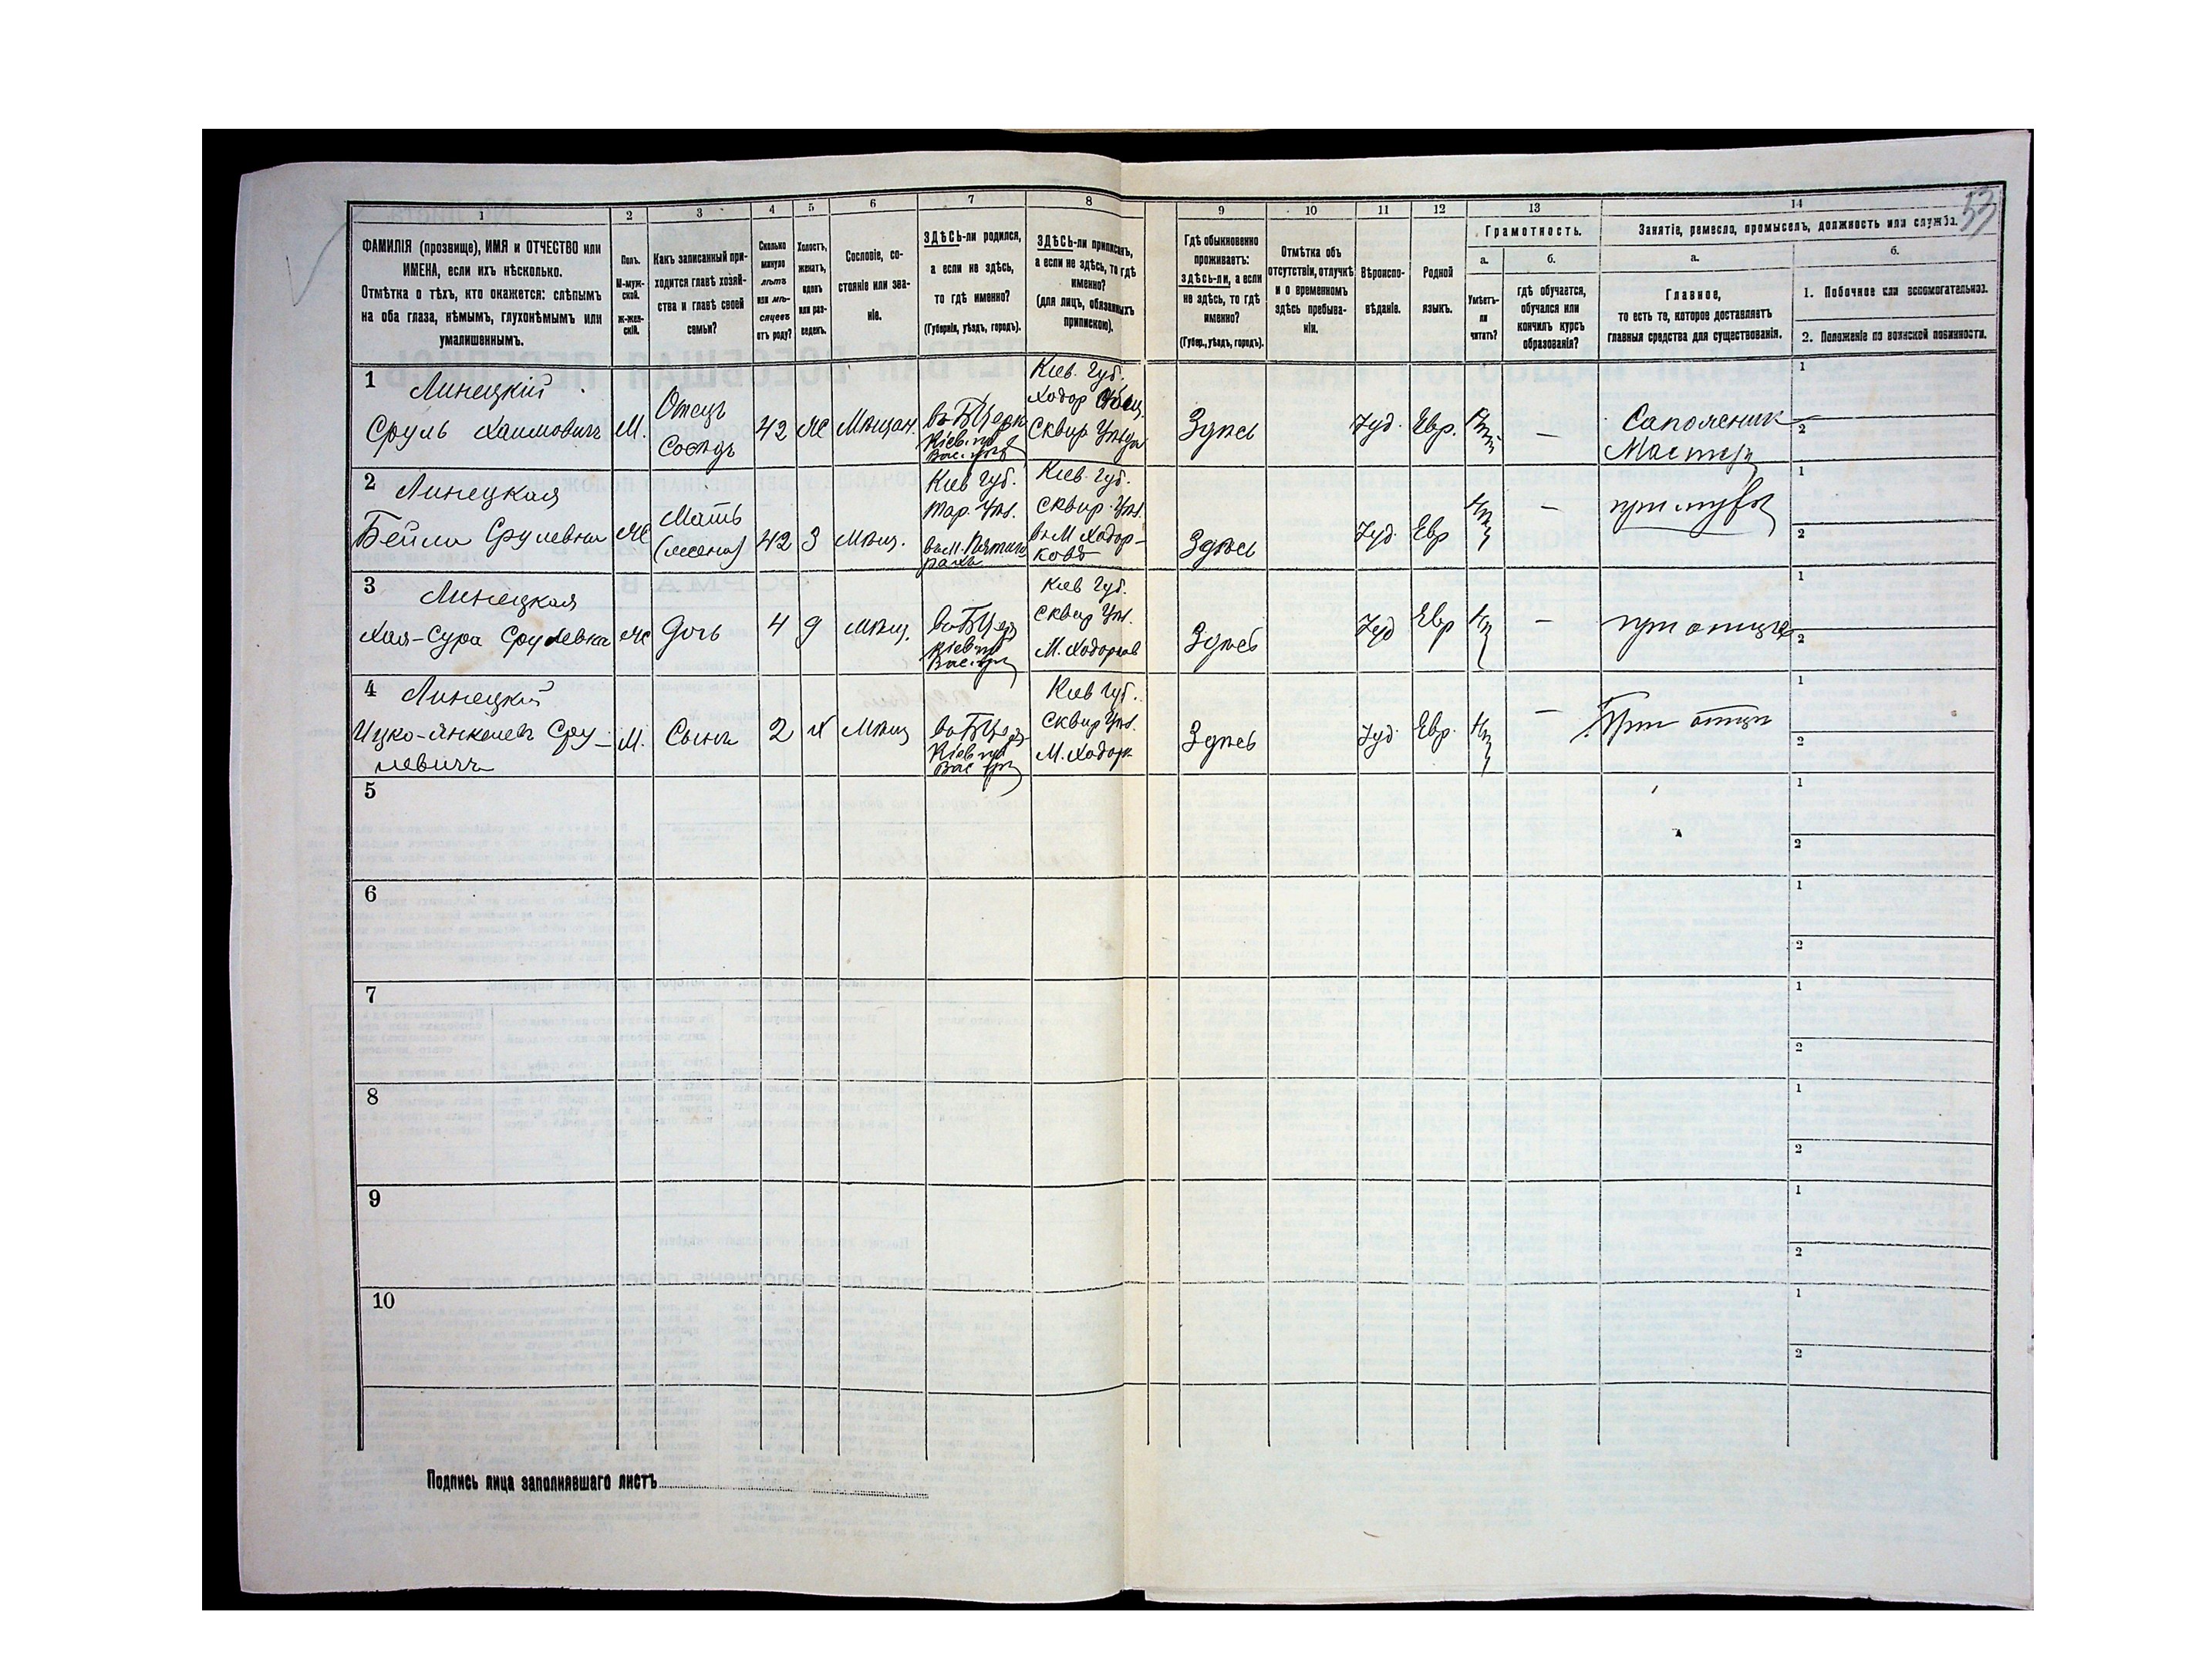 53
1
2
3
4
5
6
7
8
9
10
11
12
13
14
ФАМИЛІЯ (прозвище), ИМЯ и ОТЧЕСТВО или
ИМЕНА, если ихъ нѣсколько.
Отмѣтка о тѣхъ, кто окажется: слѣпымъ
на оба глаза, нѣмымъ, глухонѣмымъ или
умалишеннымъ.
Полъ.
М-муж-
ской.
Ж-жен-
скій.
Какъ записанный при-
ходится главѣ хозяй-
ства и главѣ своей
семьи?
Сколько
минуло
лѣтъ
или мѣ-
сяцевъ
отъ роду?
Холостъ,
женатъ,
вдовъ
или раз-
веденъ.
Сословіе, со-
стояніе или зва-
ніе.
ЗДѢСЬ-ли родился,
а если не здѣсь,
то гдѣ именно?
(Губернія, уѣздъ, городъ).
ЗДѢСЬ-ли приписанъ,
а если не здѣсь, то гдѣ
именно?
(для лицъ, обязанныхъ
припискою).
Гдѣ обыкновенно
проживаетъ:
здѣсь-ли, а если
не здѣсь, то гдѣ
именно?
(Губер., уѣздъ, городъ).
Отмѣтка объ
отсутствіи, отлучкѣ
и о временномъ
здѣсь пребыва-
ніи.
Вѣроиспо-
вѣданіе.
Родной
языкъ.
Грамотность.
а.
Умѣетъ-
ли
читать?
б.
гдѣ обучается,
обучался или
кончилъ курсъ
образованія?
Занятіе, ремесло, промыселъ, должность или служба.
а.
Главное,
то есть то, которое доставляетъ
главныя средства для существованія.
б.
1. Побочное или вспомогательное.
2. Положеніе по воинской повинности.
1
Линецкій
Сруль Хаимовичъ
М.
Отецъ
42
Ж
Мѣщан.
Кіев. Губ.
Сквир
Здѣсь
Іуд.
Евр.
—
Сапожник
Мастер
1
2
2
Линецкая
Бейла Срулевна
Ж
Мать
(жена)
42
З
Мѣщ.
Кіев Губ.
Тар. Уѣз.
Кіев. Губ.
Сквир. Уѣз.
в м. Ходор-
ковѣ
Здѣсь
Іуд.
Евр
—
при мужѣ
1
2
3
Линецкая
Хая-Сура Срулевна
Ж
Дочь
4
Д
Мѣщ.
Кіев Губ.
Сквир Уѣз.
М. Ходорков
Здѣсь
Іуд
Евр
—
при отцѣ
1
2
4
Линецкій
Ицко-Янкелев Сру-
левичъ
М.
Сынъ
2
Х
Мѣщ
Кіев Губ.
Сквир Уѣз.
М. Ходорк
Здѣсь
Іуд.
Евр.
—
При отцѣ
1
2
5
1
2
6
1
2
7
1
2
8
1
2
9
1
2
10
1
2
Подпись лица заполнявшаго листъ